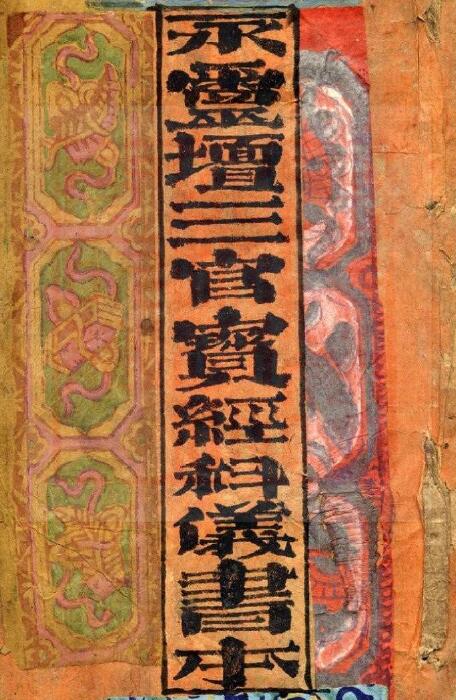 永靈壇三官寶經科儀書本